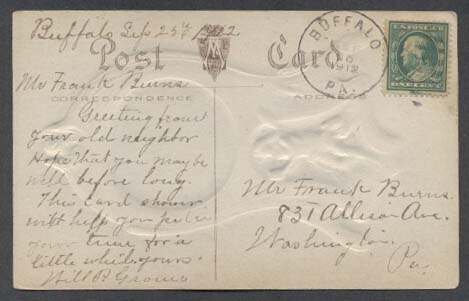 Buffalo Sep 25th 1912
Post Card
Mr Frank Burns
CORRESPONDENCE
ADDRESS
Greeting from
your old neighbor
Hope that you may be
well before long.
This card
will help you
your time for a
little while yours.
Will P.
BUFFALO
1912
PA.
ONE CENT
Mr Frank Burns
831 Allison Ave.
Washington
Pa.